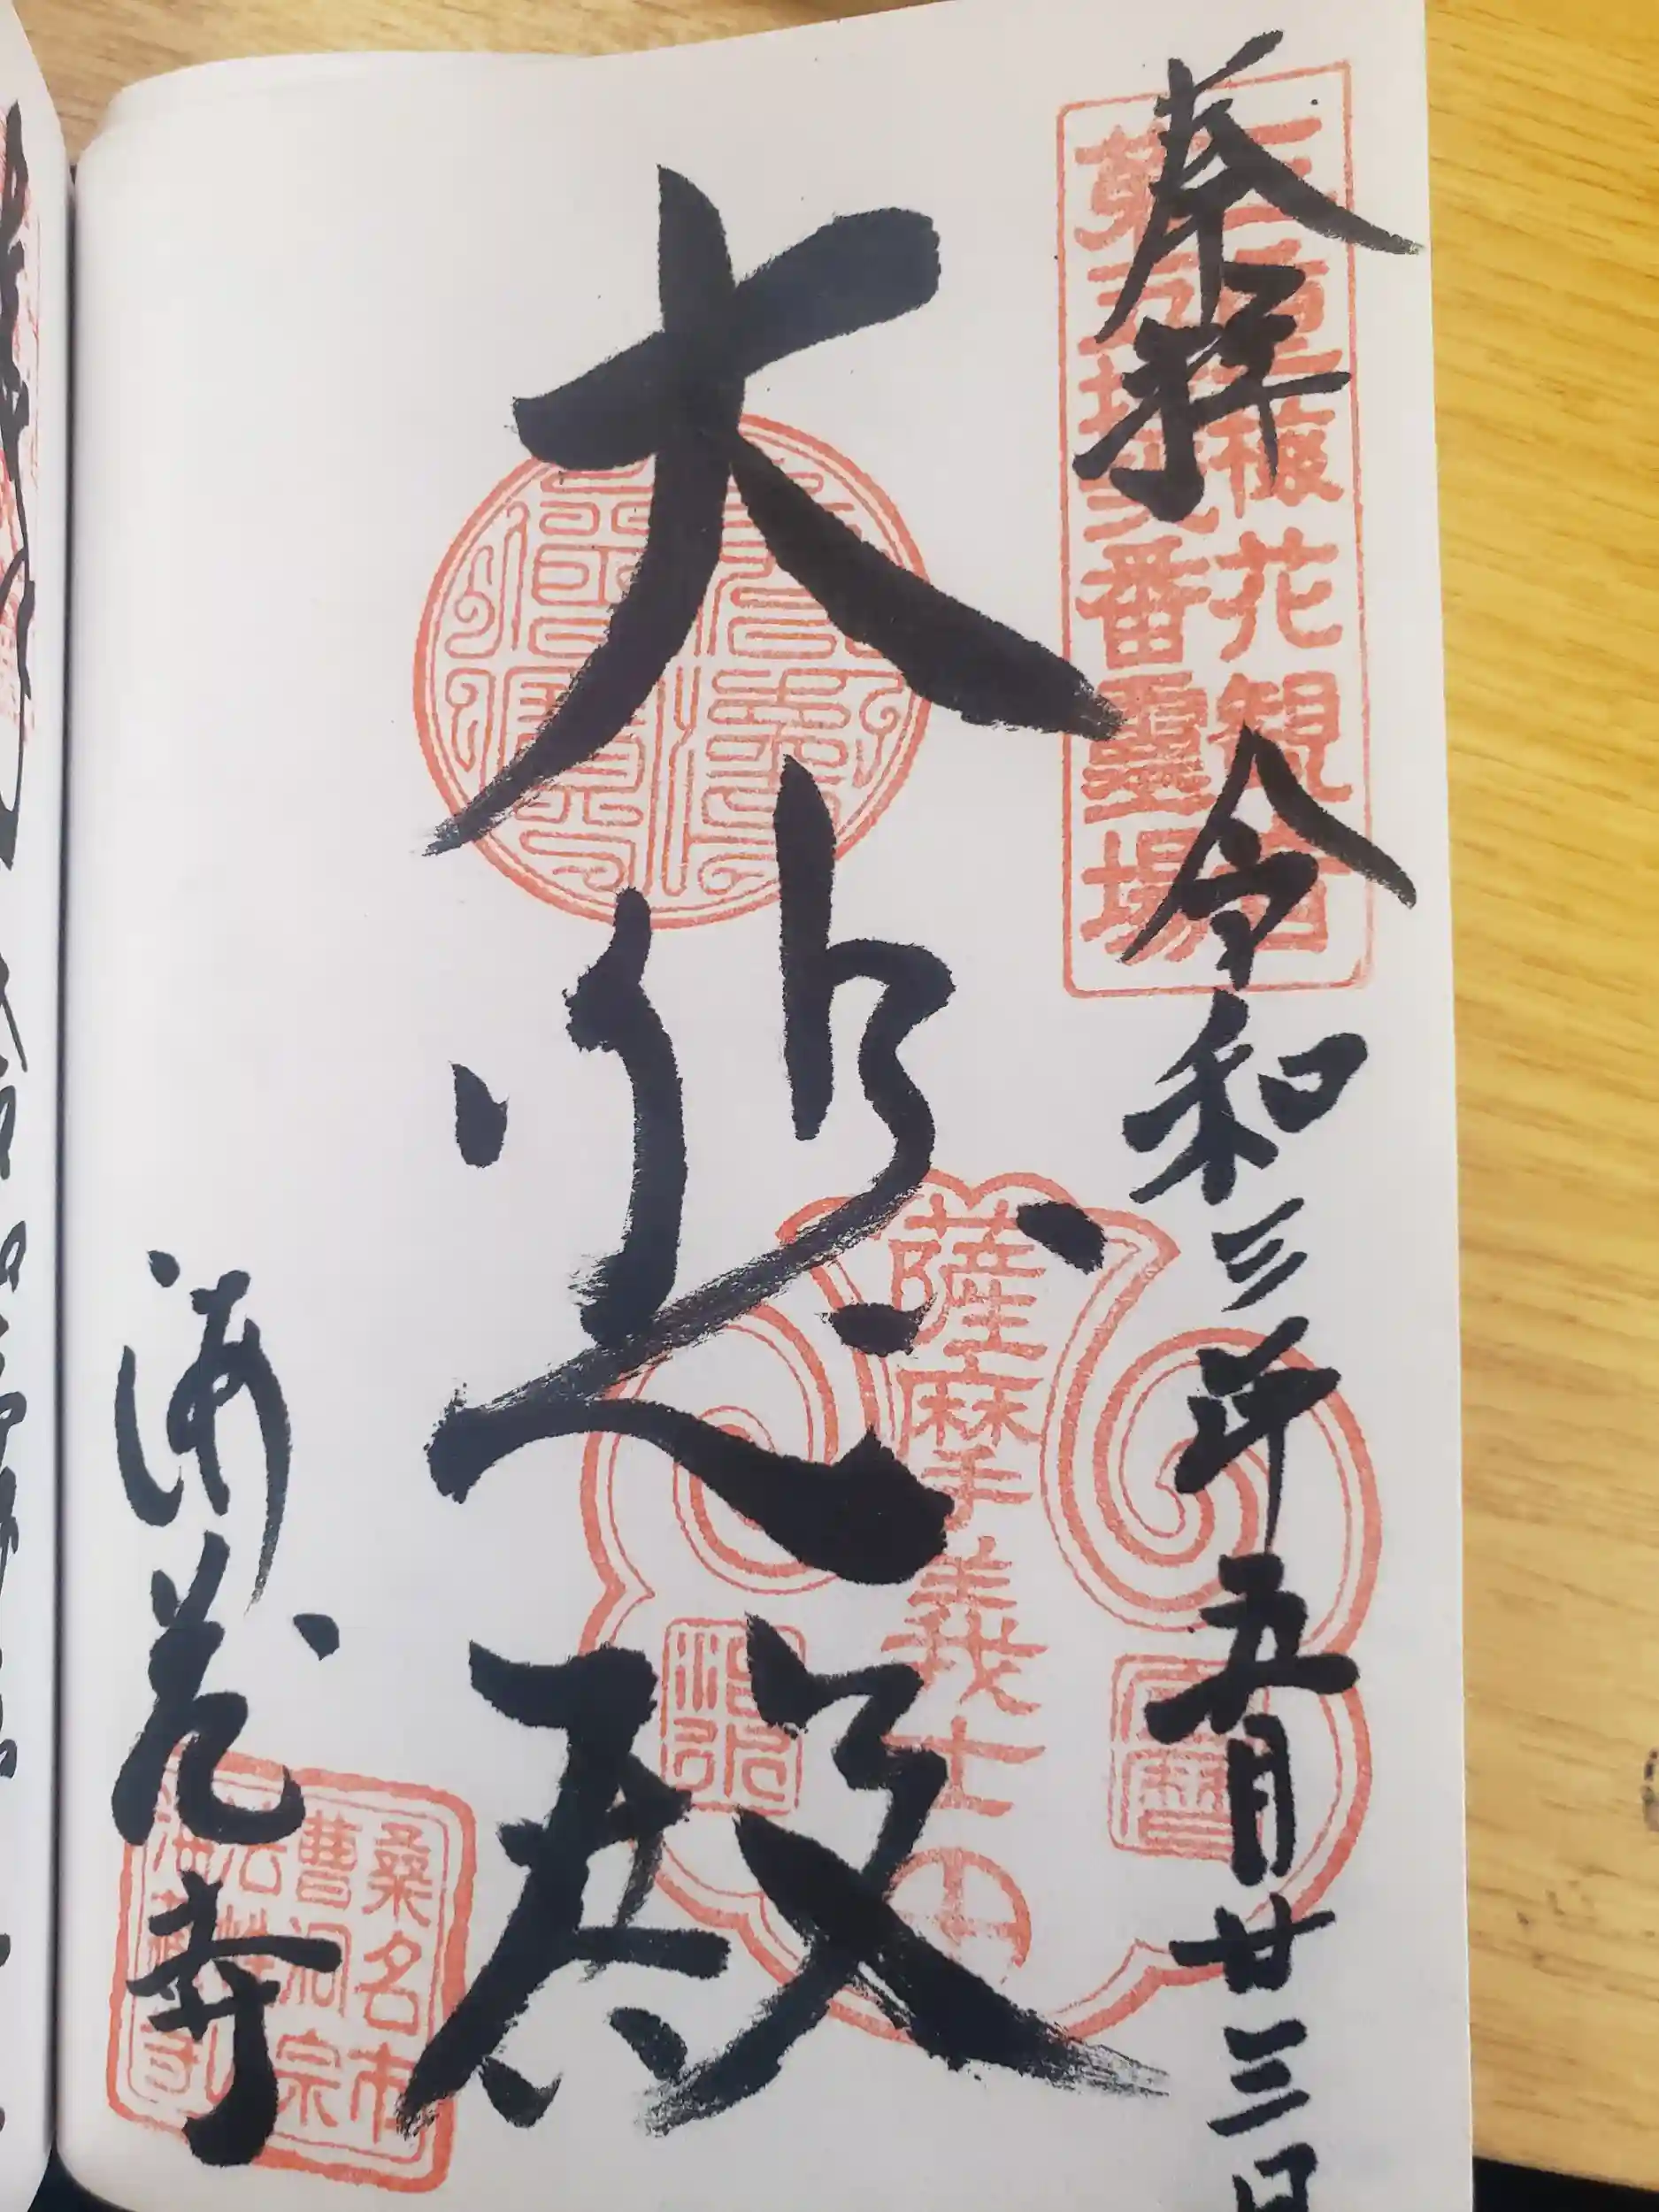 奉拝 令和三年五月廿三日
大悲殿
海蔵寺
花観音
番霊場
宝暦
薩摩義士
治水
桑名市
曹洞宗